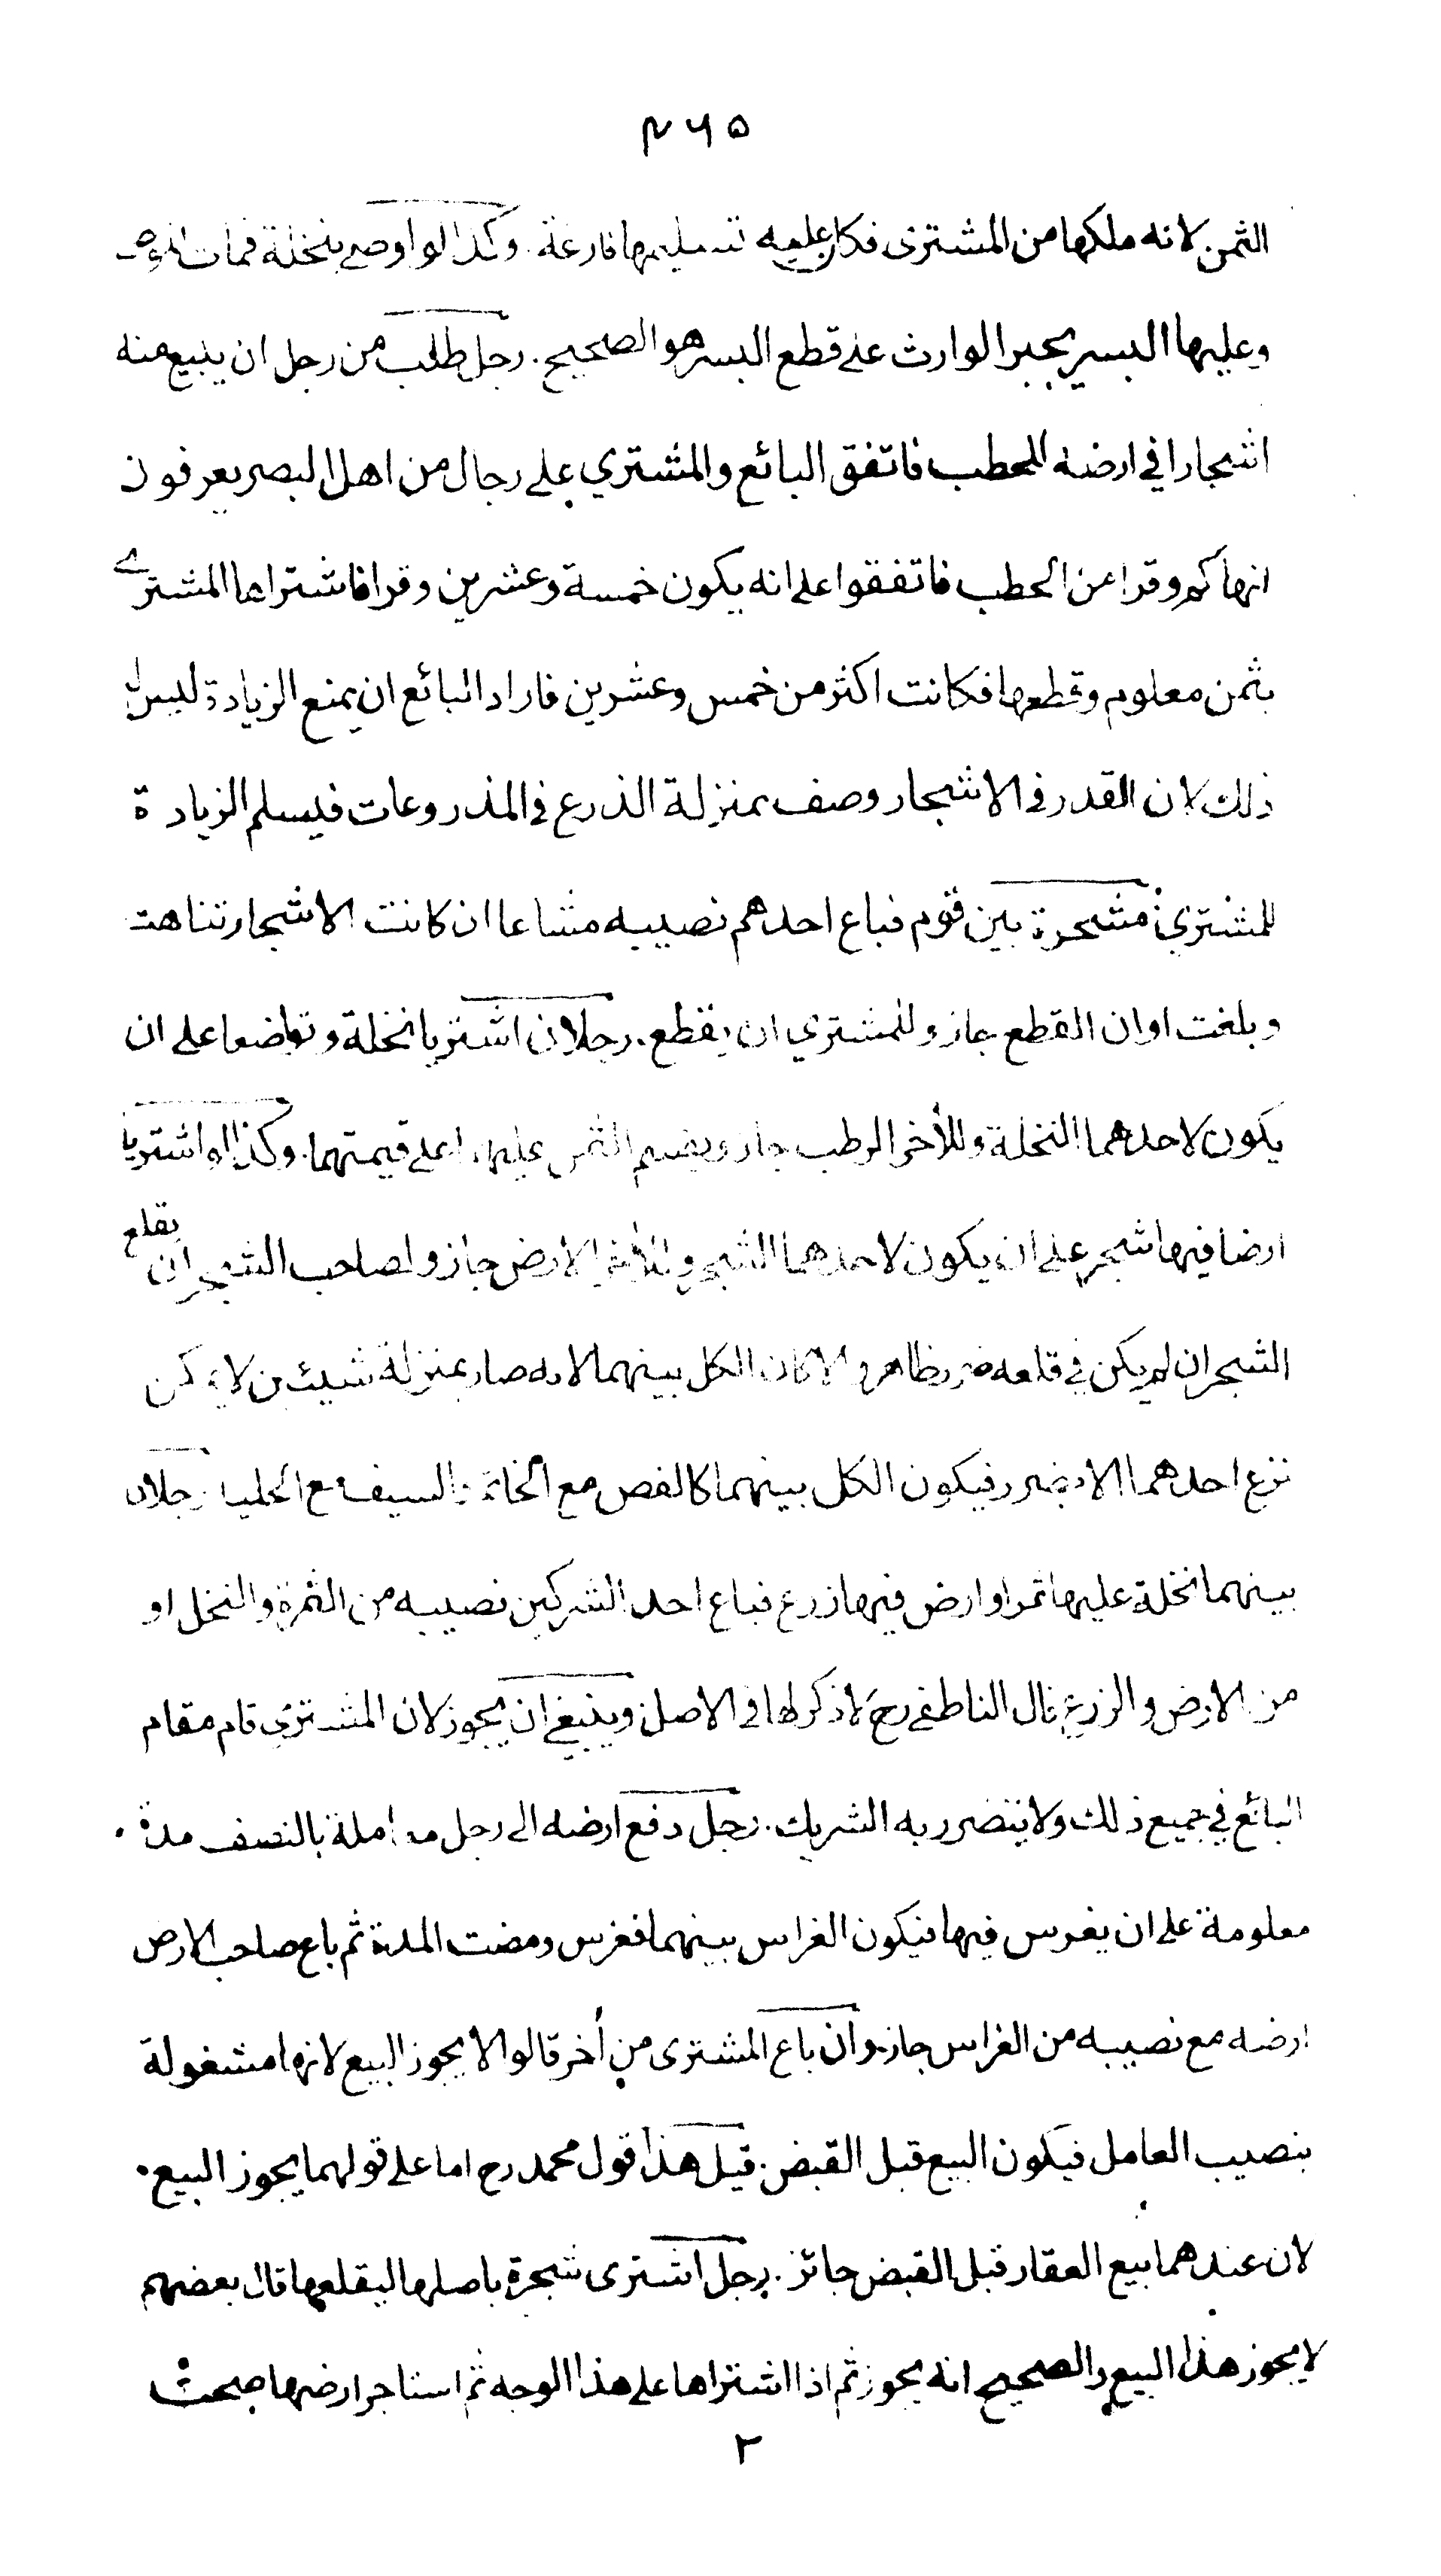 ۴۶۵
الثمن لانه ملكها من المشترى فكان عليه تسليمها فارغة. وكذا لو اوصى بنخلة فمات الموصى
وعليها البسر يجبر الوارث على قطع البسر هو الصحيح. رجل طلب من رجل ان يبيع منه
اشجارا في ارضه للحطب فاتفق البائع والمشتري على رجال من اهل البصر يعرفون
انها كم وقرا من الحطب فاتفقوا على انه يكون خمسة وعشرين وقرا فاشتراها المشترى
بثمن معلوم وقطعها فكانت اكثر من خمس وعشرين فاراد البائع ان يمنع الزيادة ليس له
ذلك لان القدر في الاشجار وصف بمنزلة الذرع في المذروعات فيسلم الزيادة
للمشتري. مشجرة بين قوم فباع احدهم نصيبه مشاعا ان كانت الاشجار تناهت
وبلغت اوان القطع جاز وللمشتري ان يقطع. رجلان اشتريا نخلة وتواضعا على ان
يكون لاحدهما النخلة وللأخر الرطب جاز ويقسم الثمن عليهما على قيمتهما. وكذا لو اشتريا
ارضا فيها شجر على ان يكون لاحدهما الشجر وللأخر الارض جاز ولصاحب الشجر ان يقلع
الشجر ان لم يكن في قلعه ضرر ظاهر والا كان الكل بينهما لانه صار بمنزلة شيئين لا يمكن
نزع احدهما الا بضرر فيكون الكل بينهما كالفص مع الخاتم والسيف مع الحلية رجلان
بينهما نخلة عليها ثمر او ارض فيها زرع فباع احد الشركين نصيبه من الثمرة والنخل او
من الارض والزرع قال الناطفى رح لا ذكر لها في الاصل وينبغى ان يجوز لان المشترى قام مقام
البائع في جميع ذلك ولا يتضرر به الشريك. رجل دفع ارضه الى رجل معاملة بالنصف مدة
معلومة على ان يغرس فيها فيكون الغراس بينهما فغرس ومضت المدة ثم باع صاحب الارض
ارضه مع نصيبه من الغراس جاز. وان باع المشترى من أخر قالوا لا يجوز البيع لانها مشغولة
بنصيب العامل فيكون البيع قبل القبض. قيل هذا قول محمد رح اما على قولهما يجوز البيع.
لان عندهما بيع العقار قبل القبض جائز. رجل اشترى شجرة باصلها ليقلعها قال بعضهم
لا يجوز هذا البيع والصحيح انه يجوز ثم اذا اشتراها على هذا الوجه ثم استاجر ارضها صحت
٢